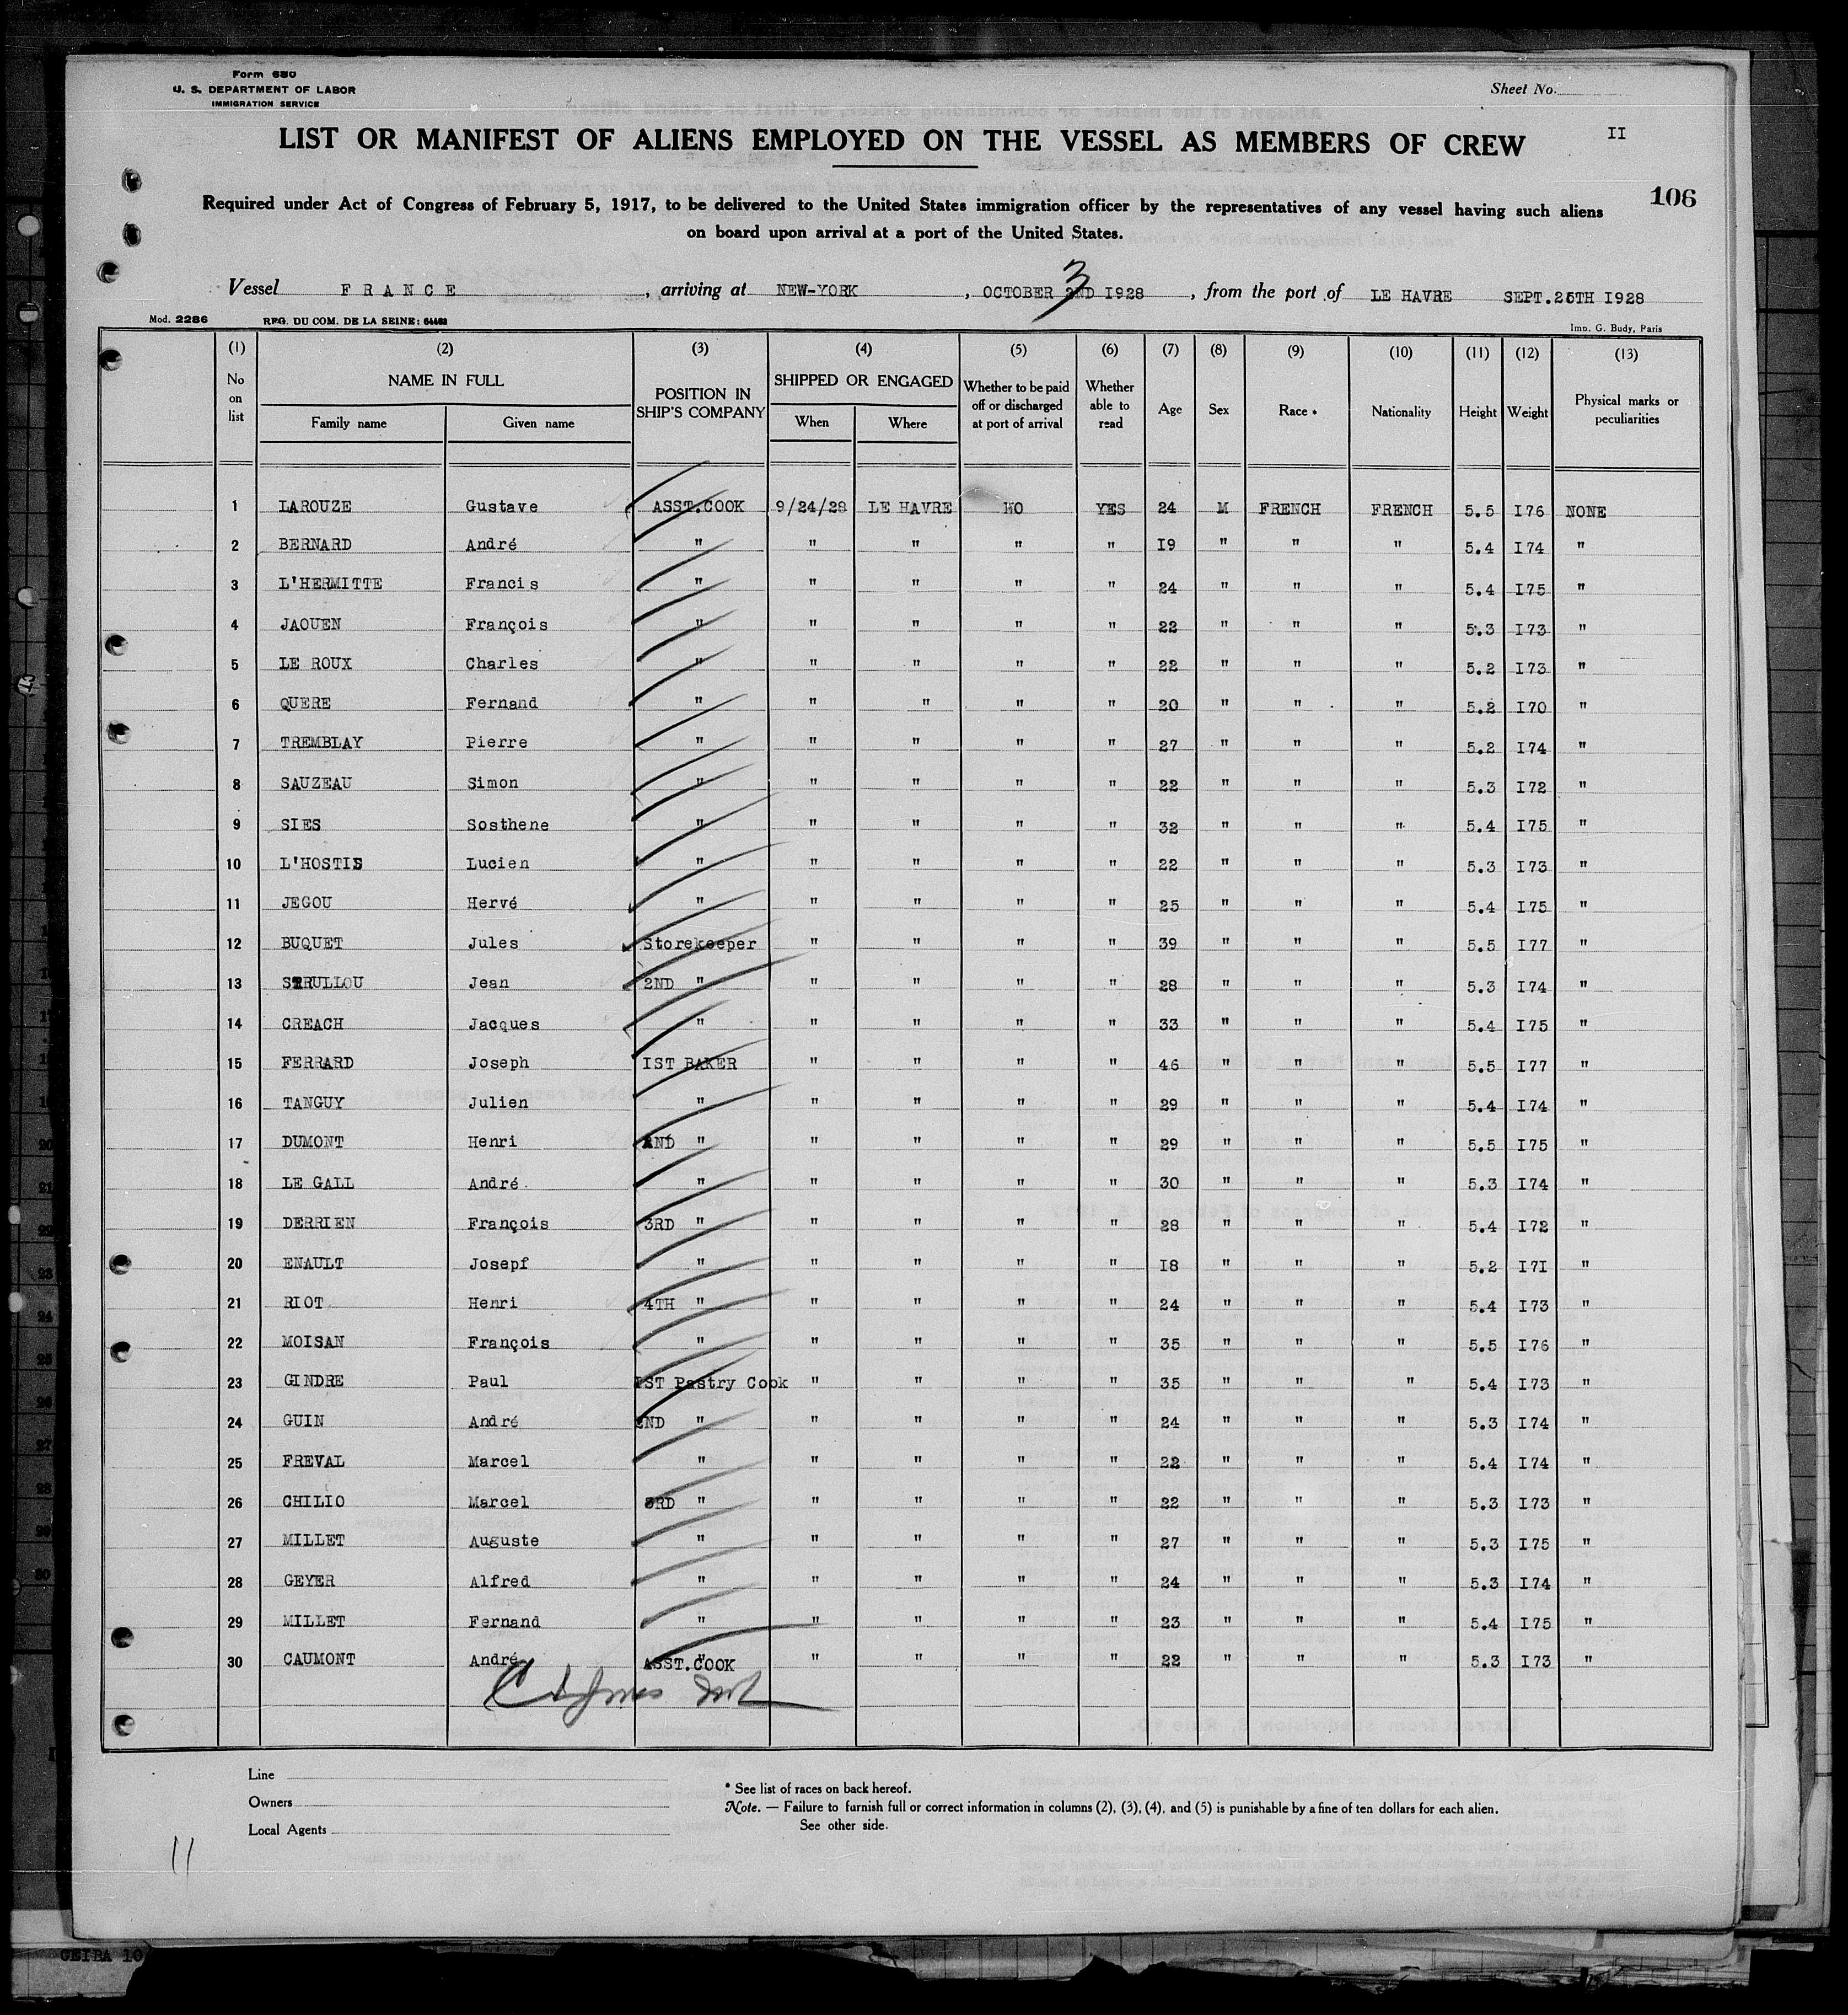 Form 680
U. S. DEPARTMENT OF LABOR
IMMIGRATION SERVICE
Sheet No.
LIST OR MANIFEST OF ALIENS EMPLOYED ON THE VESSEL AS MEMBERS OF CREW
II
106
Required under Act of Congress of February 5, 1917, to be delivered to the United States immigration officer by the representatives of any vessel having such aliens
on board upon arrival at a port of the United States.
Vessel FRANCE, arriving at NEW-YORK, OCTOBER 2ND 3 I928, from the port of LE HAVRE SEPT.25TH I928
Mod. 2286 REG. DU COM. DE LA SEINE: Imp. G. Budy, Paris
(1) (2) (3) (4) (5) (6) (7) (8) (9) (10) (11) (12) (13)
No on list NAME IN FULL Family name Given name POSITION IN SHIP'S COMPANY SHIPPED OR ENGAGED When Where Whether to be paid off or discharged at port of arrival Whether able to read Age Sex Race * Nationality Height Weight Physical marks or peculiarities
1 LAROUZE Gustave ASST.COOK 9/24/28 LE HAVRE NO YES 24 M FRENCH FRENCH 5.5 I76 NONE
2 BERNARD André " " " " " I9 " " " 5.4 I74 "
3 L'HERMITTE Francis " " " " " 24 " " " 5.4 I75 "
4 JAOUEN François " " " " " 22 " " " 5.3 I73 "
5 LE ROUX Charles " " " " " 22 " " " 5.2 I73 "
6 QUERE Fernand " " " " " 20 " " " 5.2 I70 "
7 TREMBLAY Pierre " " " " " 27 " " " 5.2 I74 "
8 SAUZEAU Simon " " " " " 22 " " " 5.3 I72 "
9 SIES Sosthene " " " " " 32 " " " 5.4 I75 "
10 L'HOSTIS Lucien " " " " " 22 " " " 5.3 I73 "
11 JEGOU Hervé " " " " " 25 " " " 5.4 I75 "
12 BUQUET Jules Storekeeper " " " " 39 " " " 5.5 I77 "
13 STRULLOU Jean 2ND " " " " " 28 " " " 5.3 I74 "
14 CREACH Jacques " " " " " 33 " " " 5.4 I75 "
15 FERRARD Joseph IST BAKER " " " " 46 " " " 5.5 I77 "
16 TANGUY Julien " " " " " 29 " " " 5.4 I74 "
17 DUMONT Henri 2ND " " " " " 29 " " " 5.5 I75 "
18 LE GALL André " " " " " 30 " " " 5.3 I74 "
19 DERRIEN François 3RD " " " " " 28 " " " 5.4 I72 "
20 ENAULT Josepf " " " " " I8 " " " 5.2 I7I "
21 RIOT Henri 4TH " " " " " 24 " " " 5.4 I73 "
22 MOISAN François " " " " " 35 " " " 5.5 I76 "
23 GINDRE Paul IST Pastry Cook " " " " 35 " " " 5.4 I73 "
24 GUIN André 2ND " " " " " 24 " " " 5.3 I74 "
25 FREVAL Marcel " " " " " 22 " " " 5.4 I74 "
26 CHILIO Marcel 3RD " " " " " 22 " " " 5.3 I73 "
27 MILLET Auguste " " " " " 27 " " " 5.3 I75 "
28 GEYER Alfred " " " " " 24 " " " 5.3 I74 "
29 MILLET Fernand " " " " " 23 " " " 5.4 I75 "
30 CAUMONT André ASST.COOK " " " " 22 " " " 5.3 I73 "
Line
Owners
Local Agents
* See list of races on back hereof.
Note. — Failure to furnish full or correct information in columns (2), (3), (4), and (5) is punishable by a fine of ten dollars for each alien.
See other side.
11